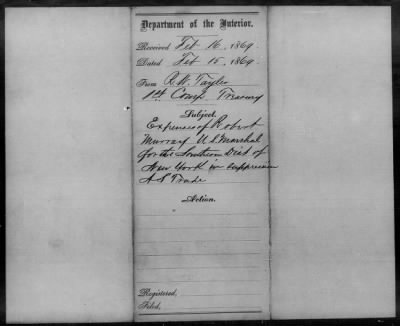 Department of the Interior.
Received Feb 16, 1869.
Dated Feb 15, 1869.
From R. W. Tayler
1st Comp. Treasury
Subject.
Expenses of Robert
Murray U.S. Marshal
for the Southern Dist of
New York in suppression
A S Trade
Action.
Registered,
Filed,